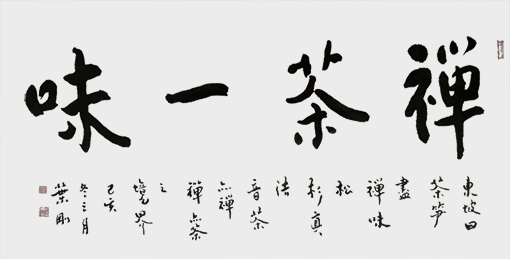 禪茶一味
東坡曰
茶笋
盡
禪味
松
杉真
法
音茶
亦禪
禪亦茶
之
境界
己亥
冬三月
葉剛